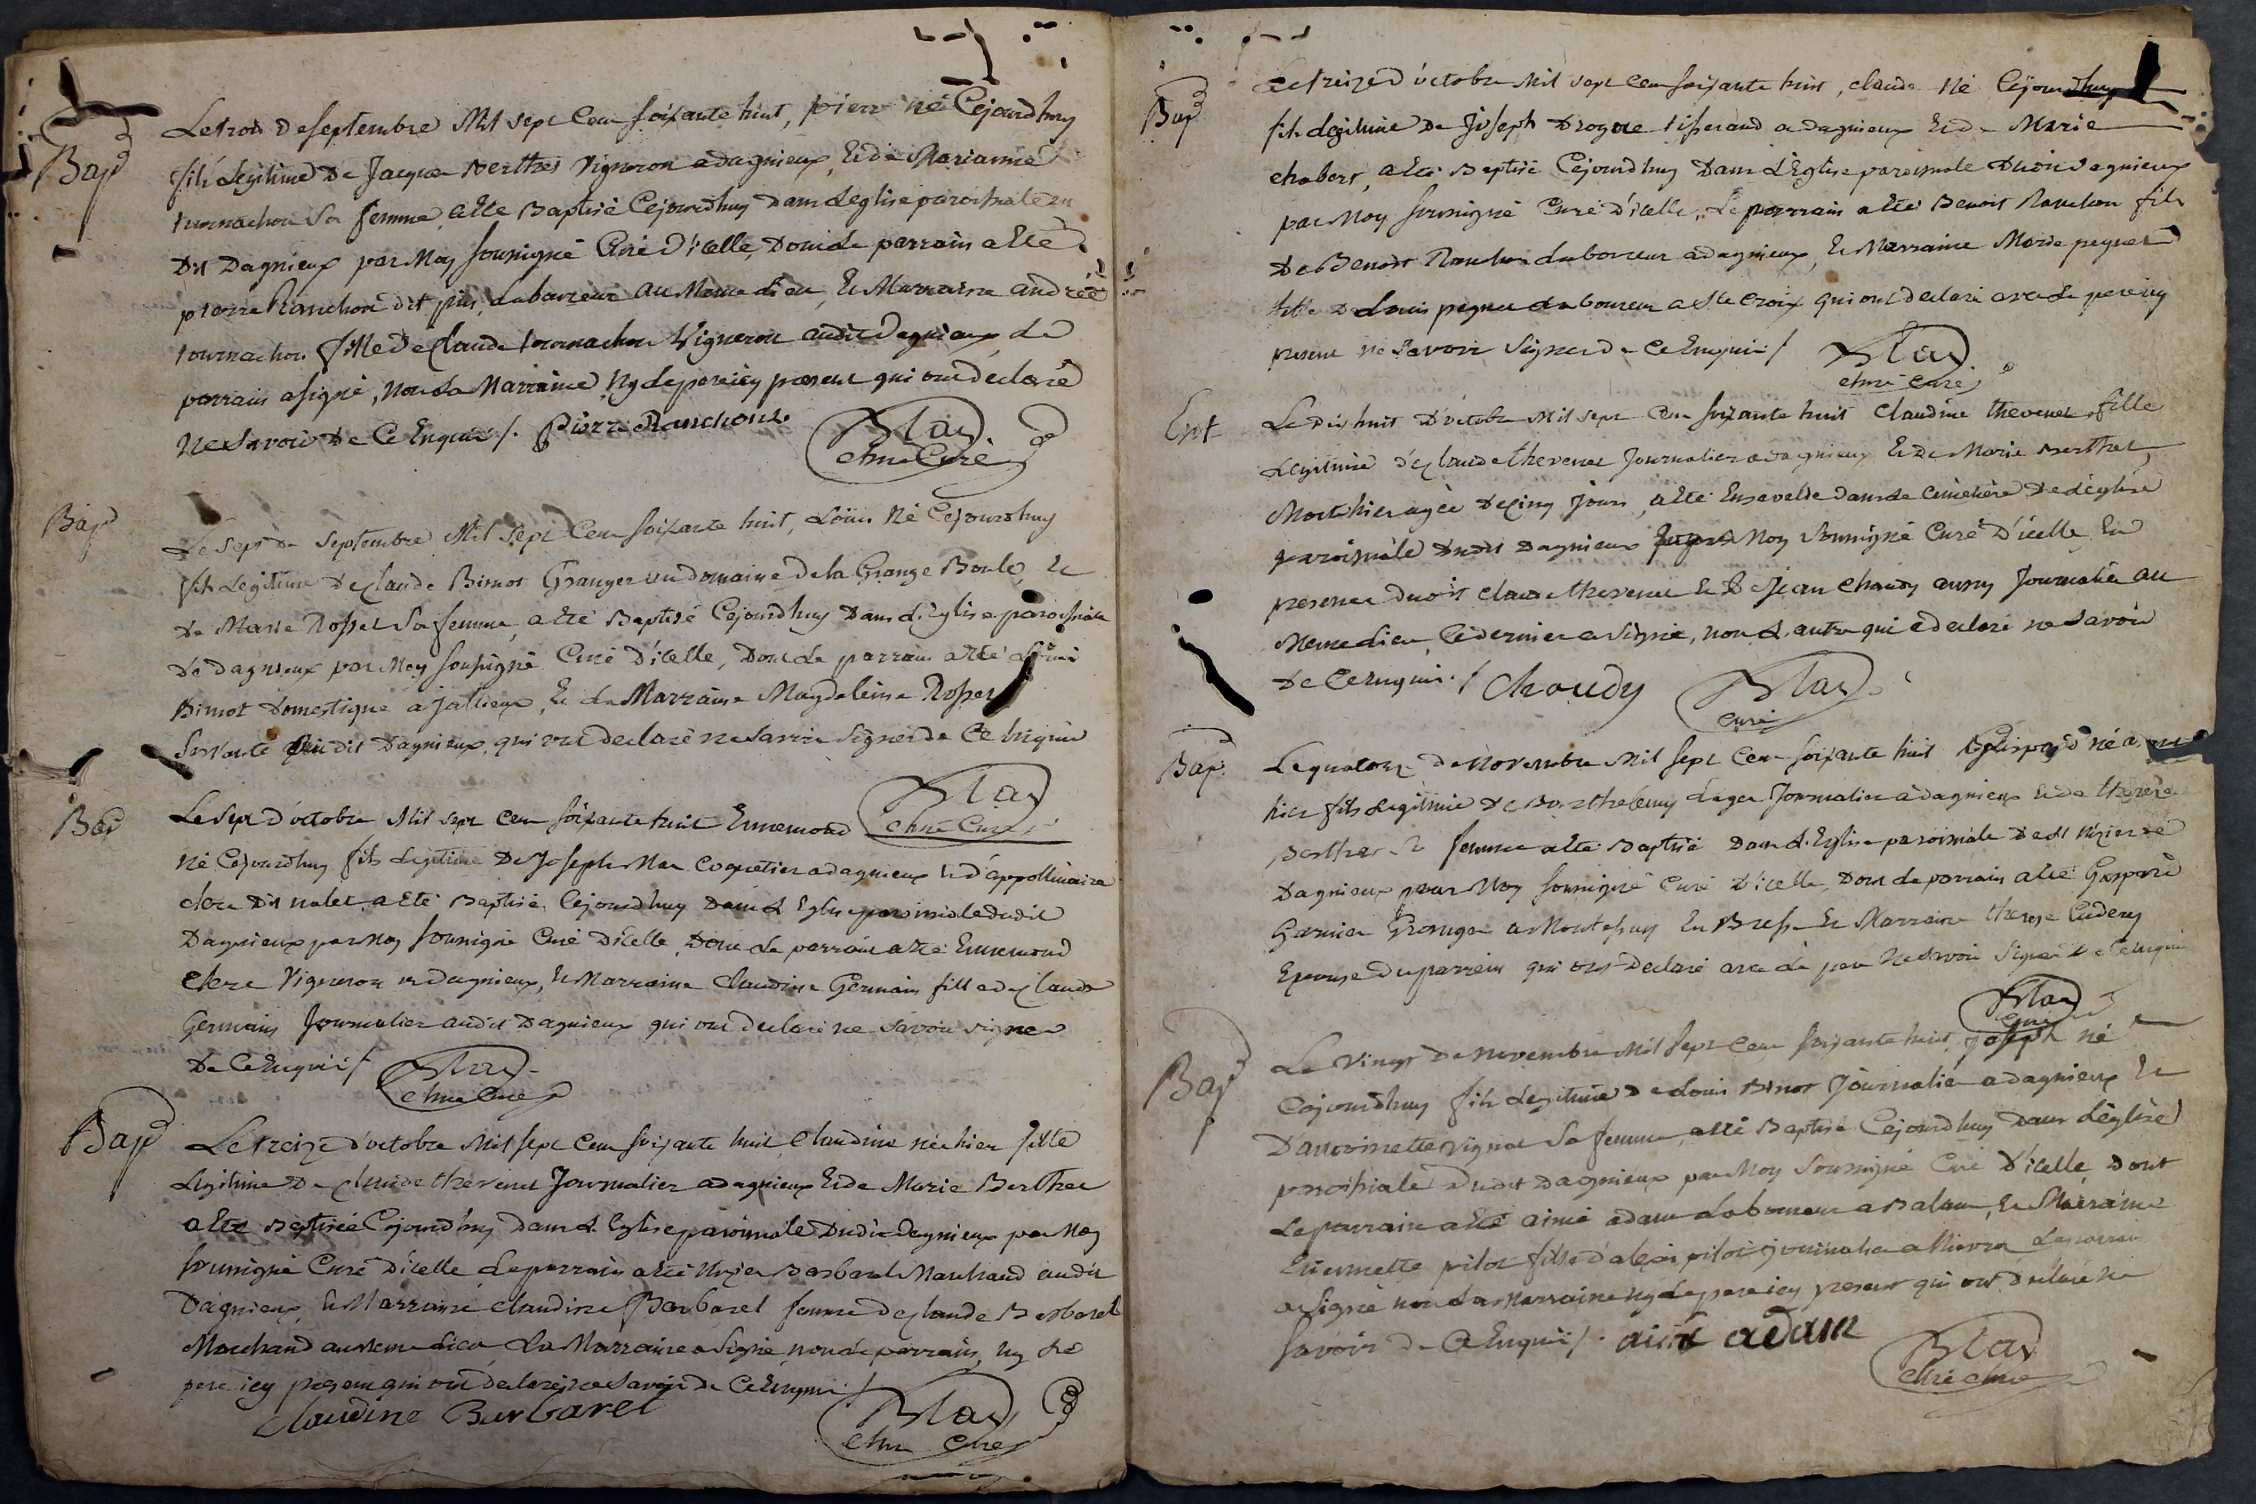 Bap
Le trois de septembre Mil sept cent soixante huit, pierre né Cejourdhuy
fils Legitime De Jacque berthes vigneron a dagnieux, Et de Marianne
tournachon Sa femme, a eté Baptisé Cejourdhuy Dans L'eglise paroissiale du
Dit Dagnieux par Moy soussigné Curé D'icelle, Dont Le parrain a Eté
pierre Ranchon dit pin, Laboureur au Meme Lieu, Et Marraine andrée
tournachon fille De Claude tournachon Vigneron audit Dagnieux, Le
parrain a signé, Non La Marraine Ny Le pere icy present qui ont Declaré
Ne Savoir De Ce Enquis /. Pierre Ranchon
Blay
Curé
Bap
Le Sept De Septembre Mil Sept Cent Soixante huit, Loüis Né Cejourdhuy
fils Legitime De Claude Bimot Granger au domaine De la Grange Boule, Et
De Marie Rosset Sa femme, a eté Baptisé Cejourdhuy Dans L'Eglise paroissiale
De Dagnieux par Moy soussigné Curé D'icelle, Dont Le parrain a eté Loüis
Bimot Domestique a Jallieux, Et La Marraine Magdeleine Rosset
Servante audit Dagnieux, qui ont declaré ne Savoir Signer De Ce Enquis
Blay
Curé
Bap
Le Sept D'octobre Mil Sept Cent Soixante huit Ennemond
Né Cejourdhuy fils Legitime De Joseph Coquetier a dagnieux Et d'appollinaire
clere Dit nalet, a Eté Baptisé Cejourdhuy Dans L'Eglise paroissiale dudit
Dagnieux par Moy soussigné Curé Dicelle, Dont Le parrain a eté Ennemond
clere Vigneron a Dagnieux, Et Marraine Claudine Germain fille de Claude
Germain Journalier audit Dagnieux qui ont declaré ne Savoir signer
De Ce Enquis /
Blay
Curé
Bap
Le treize d'octobre Mil Sept Cent Soixante huit, Claudine née hier fille
Legitime De Claude thevenet Journalier a dagnieux Et de Marie Berthet
a Eté Baptisée Cejourdhuy Dans L'Eglise paroissiale Dudit Dagnieux par Moy
soussigné Curé D'icelle, Le parrain a eté Barbaret Marchand audit
Dagnieux, Et Marraine Claudine Barbaret femme De Claude Barbaret
Marchand au Meme Lieu, La Marraine a signé, non Le parrain, Ny Le
pere icy present qui ont declaré ne Savoir De Ce Enquis /
Claudine Barbaret
Blay
Curé
Bap
Le treize d'octobre Mil Sept Cent Soixante huit, Claude Né Cejourdhuy
fils Legitime De Joseph Drogue tisserand a dagnieux Et De Marie
chabert, a eté Baptisé Cejourdhuy Dans L'Eglise paroissiale Dudit Dagnieux
par Moy soussigné Curé D'icelle, Le parrain a eté Benoit Ranchon fils
De Benoit Ranchon Laboureur a dagnieux, Et Marraine Marie peguet
fille De Louis peguet Laboureur a Ste Croix qui ont declaré avec Le pere icy
present ne Savoir Signer De Ce Enquis /
Blay
Curé
Ent
Le Dix huit D'octobre Mil Sept Cent Soixante huit Claudine thevenet, fille
Legitime de Claude thevenet Journalier a dagnieux Et De Marie berthet
Morte hier agée De Cinq Jours, a eté Ensevelie Dans Le Cimetière De L'église
paroissiale Dudit Dagnieux par Moy Soussigné Curé D'icelle, En
presence Dudit Claude thevenet Et De Jean Chaudy aussy Journalier au
Meme Lieu, Ce dernier a Signé, non L'autre qui a declaré ne Savoir
De Ce Enquis. / Choudy
Blay
Curé
Bap
Le quatorze De Novembre Mil Sept Cent Soixante huit Gaspard né
hier fils Legitime De Barthelemy Leger Journalier a dagnieux Et De therese
Berthet Sa femme a eté Baptisé Dans L'Eglise paroissiale De
Dagnieux par Moy soussigné Curé D'icelle, Dont Le parrain a eté Gaspard
Garnier Granger a Montessuy En Bresse Et Marraine therese
Epouse Du parrain qui ont Declaré avec Le pere Ne Savoir Signer De Ce Enquis
Blay
Curé
Bap
Le Vingt De novembre Mil Sept Cent Soixante huit, Joseph né
Cejourdhuy fils Legitime De Louis Binot Journalier a dagnieux Et
D'antoinette vignat Sa femme, a eté Baptisé Cejourdhuy Dans L'église
paroissiale Dudit Dagnieux par Moy Soussigné Curé D'icelle, Dont
Le parrain a eté aimé adam Laboureur a Balan, Et Marraine
Etiennette pilot fille d'alexis pilot journalier a Le parrain
a Signé non La Marraine Ny Le pere icy present qui ont Declaré Ne
Savoir De Ce Enquis /. aimé adam
Blay
Curé